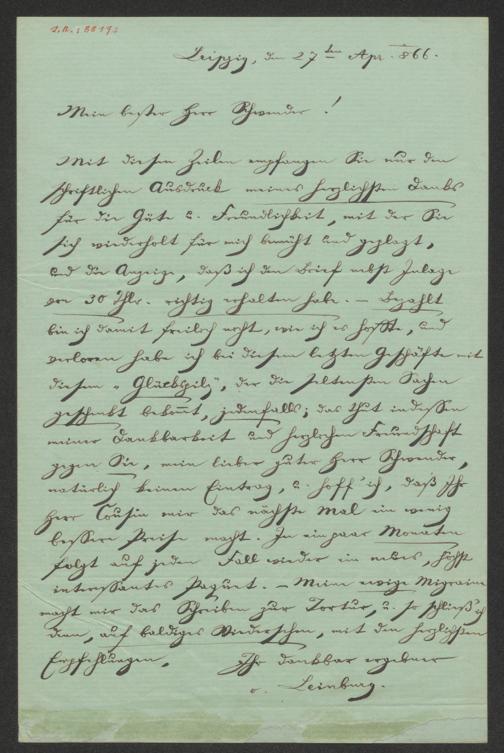 I.N. 88193
Leipzig, den 27ten Apr. 866.
Mein bester Herr Schwender!
Mit diesen Zeilen empfangen Sie nur den
schriftlichen Ausdruck meines herzlichsten Danks
für die Güte u. Freundlichkeit, mit der Sie
sich wiederholt für mich bemüht und geplagt,
und die Anzeige, daß ich den Brief nebst Inlage
von 30 Thlr. richtig erhalten habe. – Bezahlt
bin ich damit freilich nicht, wie ich es hoffte, und
verloren habe ich bei diesem letzten Geschäfte mit
diesem „Glückspilz“, der die seltensten Sachen
geschenkt bekommt, jedenfalls; das thut indessen
meiner Dankbarkeit und herzlichen Freundschaft
gegen Sie, mein lieber guter Herr Schwender,
natürlich keinen Eintrag, u. hoff' ich, daß Ihr
Herr Cousin mir das nächste Mal ein wenig
bessere Preise macht. In ein paar Monaten
folgt auf jeden Fall wieder ein neues, höchst
interessantes Paquet. – Meine ewige Migraine
macht mir das Schreiben zur Tortur, u. so schließ' ich
denn, auf baldiges Wiedersehen, mit den herzlichsten
Empfehlungen, Ihr dankbar ergebener
v. Leinburg.